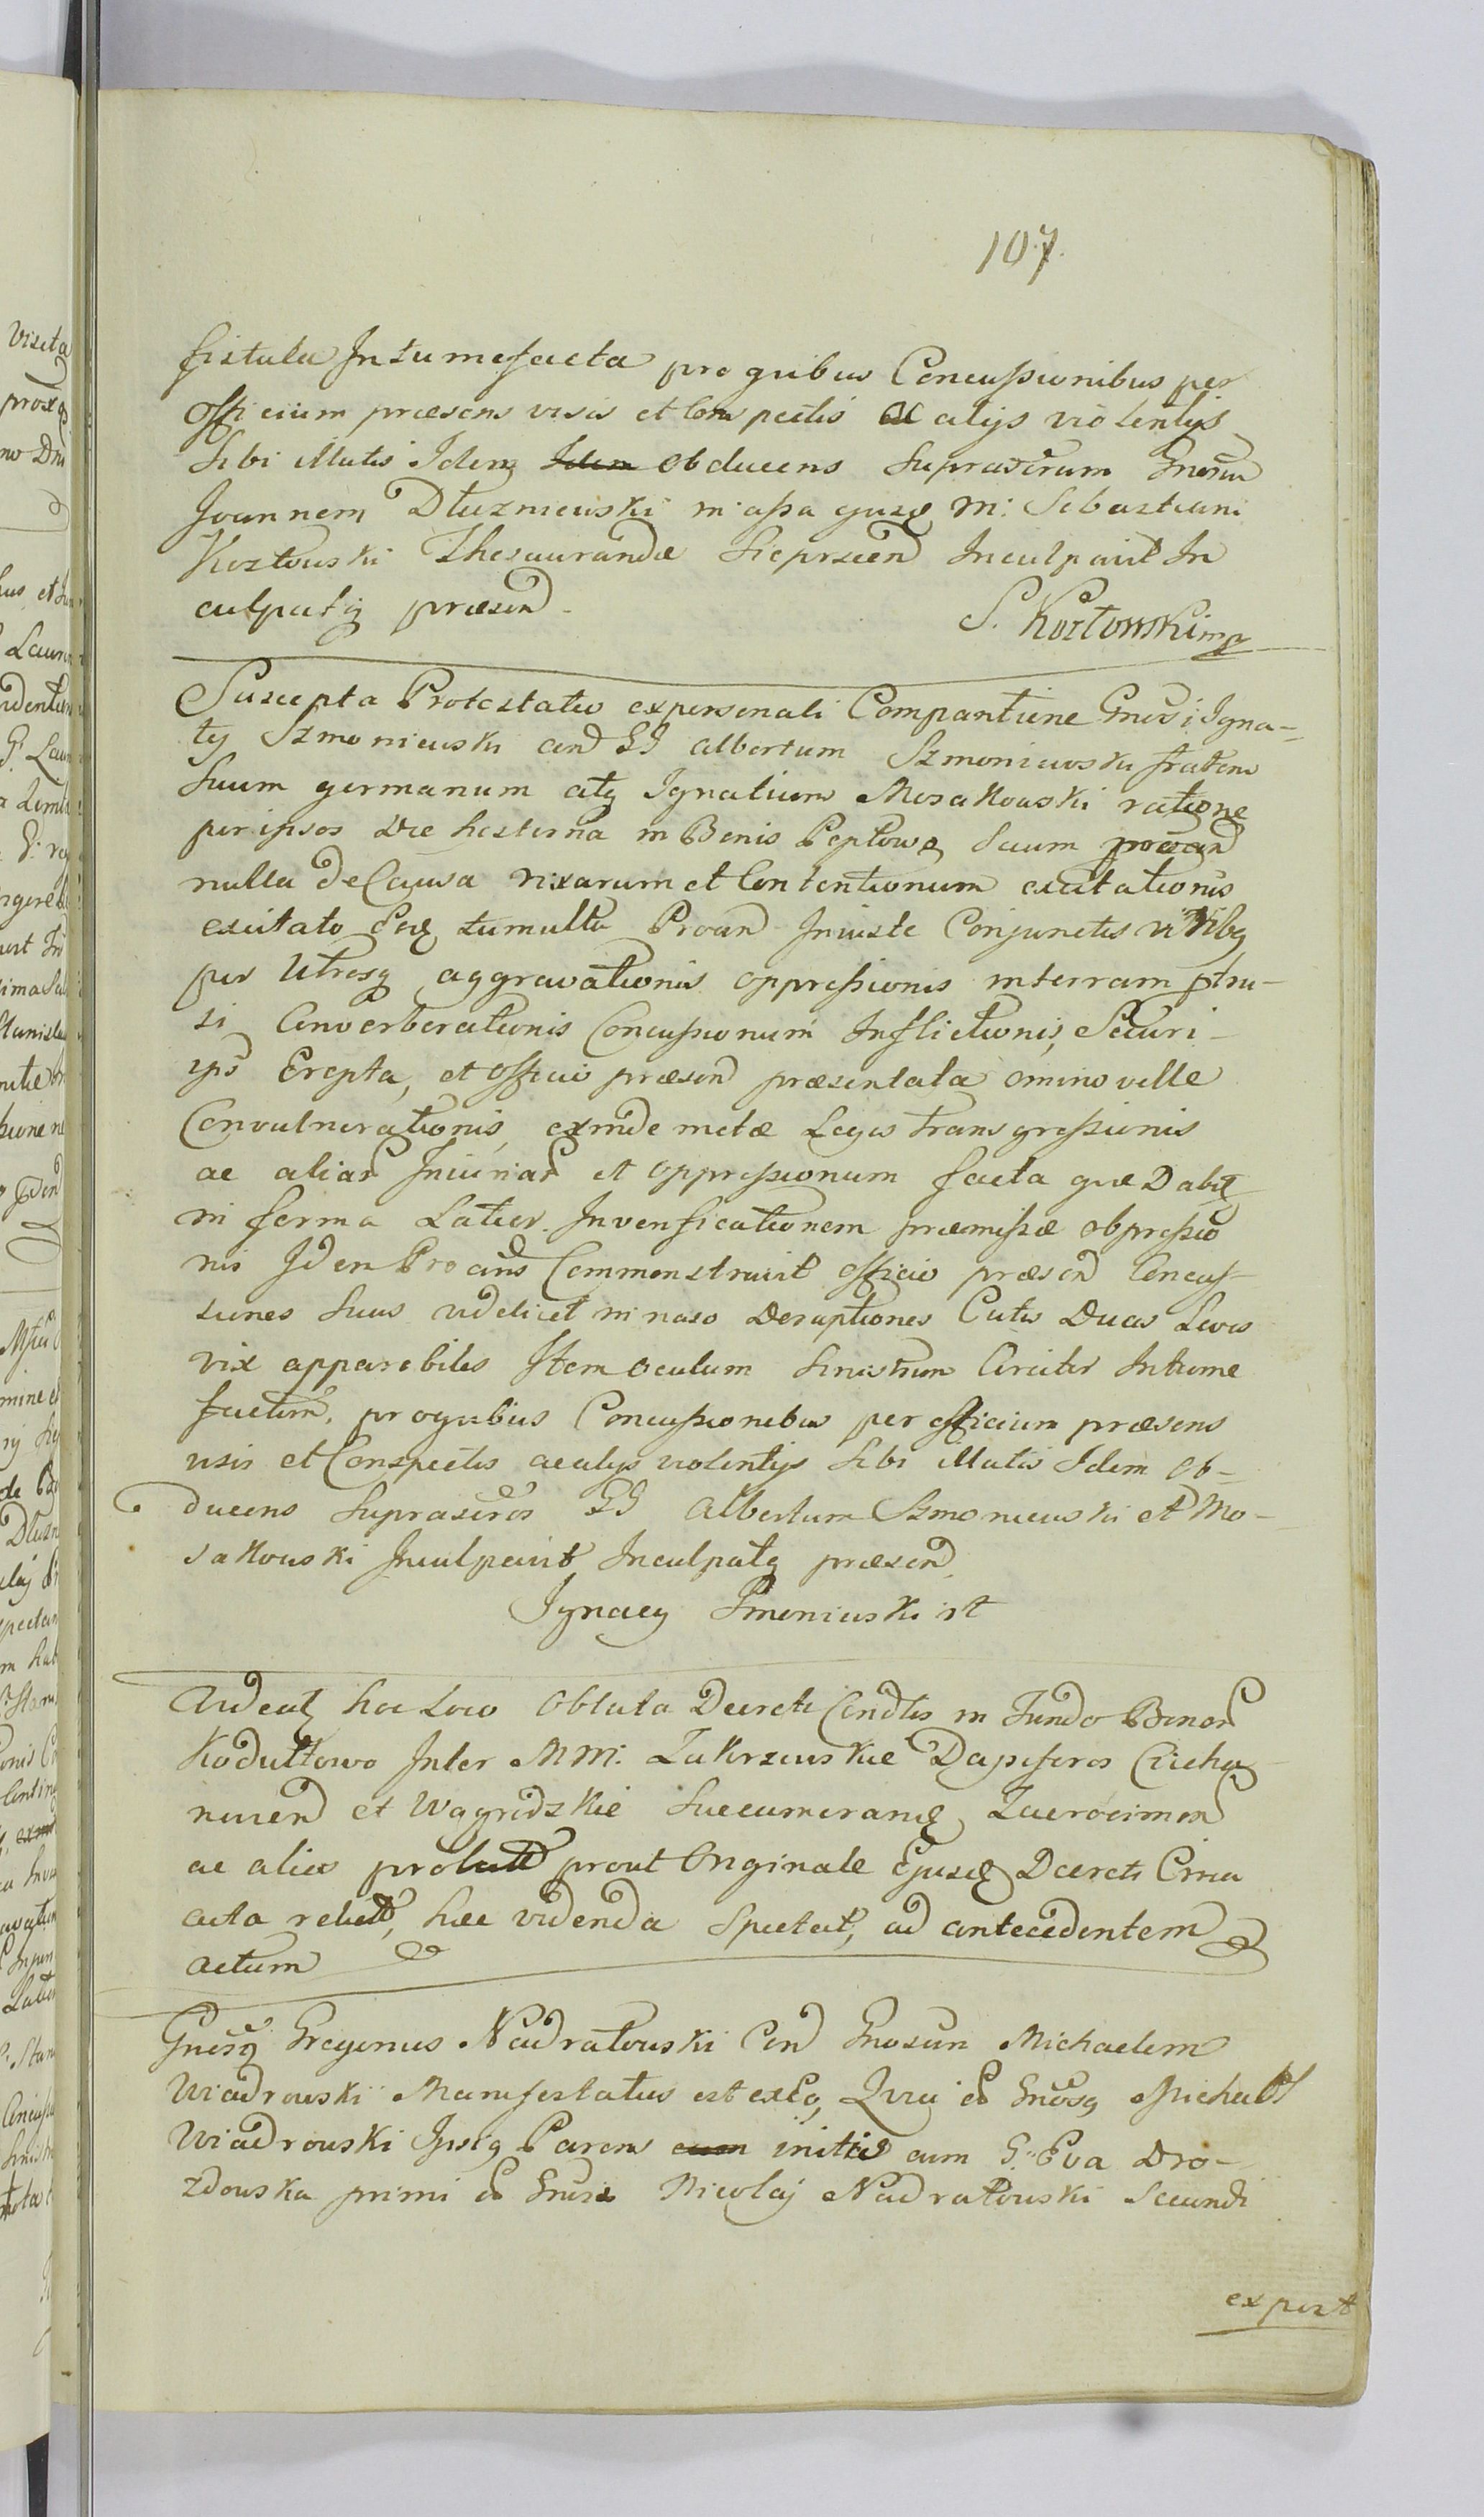 107.
fistula Intumefacta pro quibus Concussionibus per
Officium præsens visis et Conspectis ac alijs violentijs
Sibi illatis Idem Idem obducens Suprascrum Gnosum
Joannem Dłuzniewski in assa ejusq M: Sebastiani
Kozłowski Thesaurandæ Sieprscen Inculpavit In
culpatq præsen
S. Kozłowski mp
Suscepta Protestatio ex personali Comparitione Gnosi Igna-
tij Szmoniewski con GG Albertum Szmoniewski fratrem
Suum germanum atq Ignatium Mosakowski ratione
per ipsos Die hesterna in Bonis Pepłowo Suum proean
nulla de Causa rixarum et Contentionum excitationis
exitato Eoq tumultu Proan Iniuste Conjunctis viribq
per Utrosq aggravationis oppressionis in terram ptru-
si Converberationis Concussionum Inflictionis, Securi
ips Erepta, et Officio præsen præsentata omino velle
Convulnerationis, exinde metæ Legis transgressionis
ac aliar Iniuriar et oppressionum facta quæ Dabit
in forma Latior. In verificationem præmissæ obpressio
nis Idem Procans Commonstravit officio præsen Concus-
siones Suas videlicet in naso Deruptiones Cutis Duas Leves
vix apparebiles Item oculum Sinistrum Circiter Intume
factum, pro quibus Concussionibus per officium præsens
visis et Conspectis ac alijs violentijs Sibi illatis Idem Ob-
ducens Suprascros GG Albertum Szmoniewski et Mo-
sakowski Inculpavit Inculpatq præsen
Ignacy Smoniewski
Videat hoc Loco Oblata Decreti Condtis in Fundo Bonor
Kodułtowo Inter MM: Zakrzewskie Dapiferos Ciecha
novien et Wągrodzkie Succameranq Zacrocimen
ac alios prolat prout Originale Ejusq Decreti Circa
acta relict, hæc videnda Spectat, ad antecedentem
actum
Gnosq Gregorius Nadratowski Con Gnosum Michaelem
Wiadrowski Manifestatus est ex Eo, Quia is Gnosq Michael
Wiadrowski Ipsiq Parens eum initis cum G. Eva Dro-
zdowska primi is Gnosi Nicolaj Nadratowski Secundi
expost